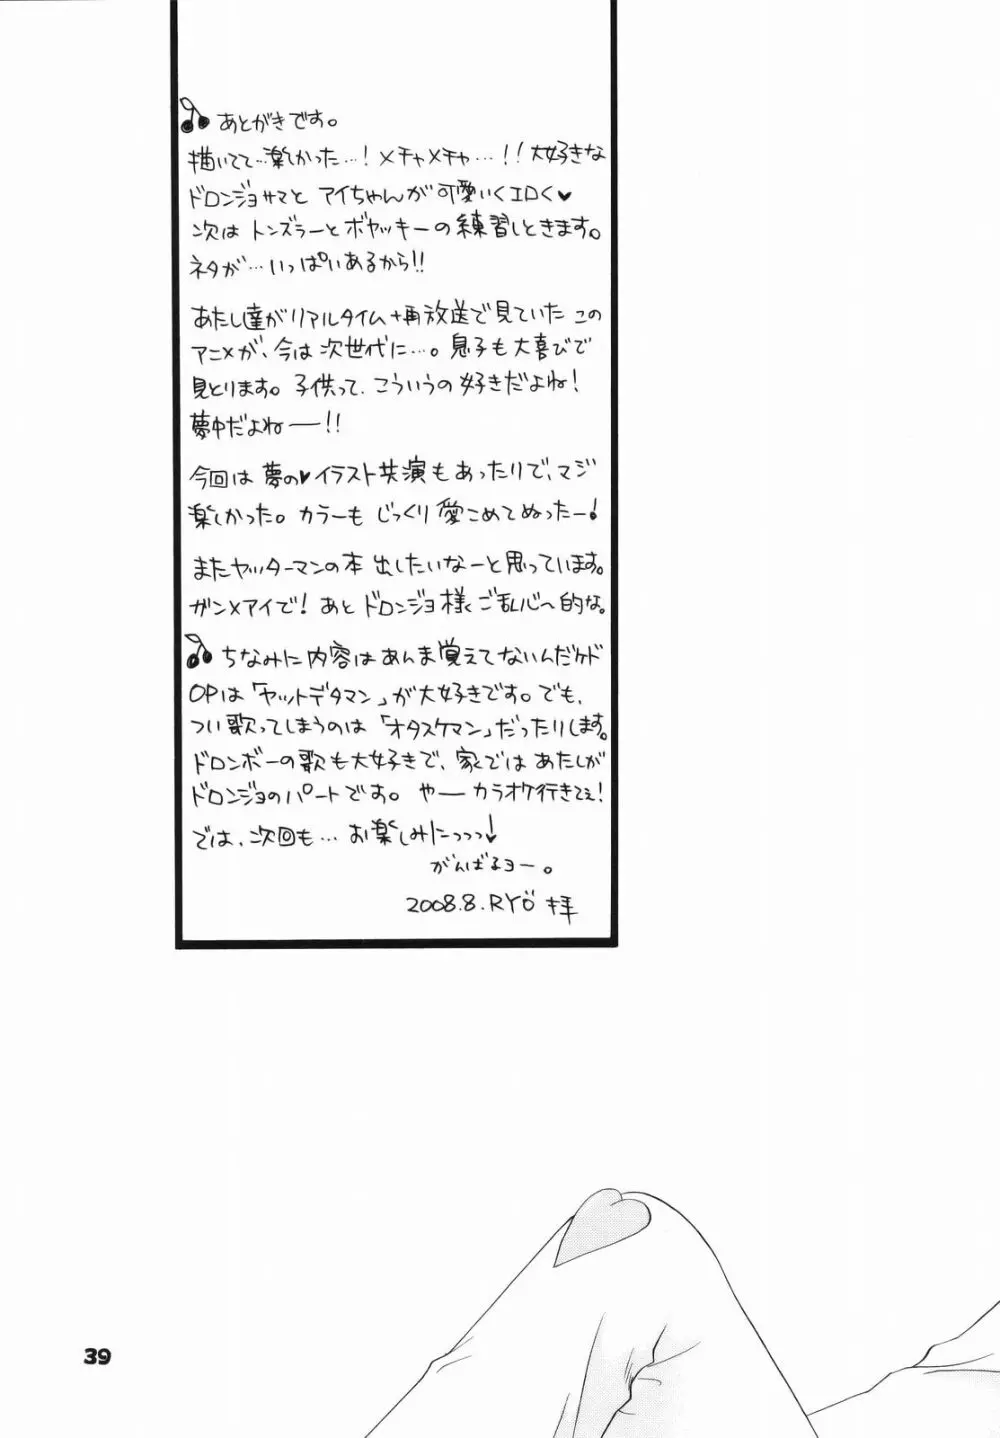 あとがきです。
描いてて…楽しかった…!メチャメチャ…!!大好きな
ドロンジョサマと アイちゃんが可愛いくエロく♥
次は トンズラーとボヤッキーの練習しときます。
ネタが…いっぱいあるから!!
あたし達がリアルタイム+再放送で見ていた この
アニメが、今は次世代に…。息子も大喜びで
見とります。子供って、こういうの好きだよね!
夢中だよねー!!
今回は 夢の♥イラスト共演もあったりで、マジ
楽しかった。カラーも じっくり愛こめてぬったー!
またヤッターマンの本 出したいなーと思っています。
ガン×アイで!あと ドロンジョ様ご乱心へ的な。
ちなみに内容はあんま覚えてないんだケド
OPは「ヤットデタマン」が大好きです。でも、
つい歌ってしまうのは「オタスケマン」だったりします。
ドロンボーの歌も大好きで、家ではあたしが
ドロンジョのパートです。やーカラオケ行きてぇ!
では、次回も…お楽しみにっっっ↓
がんばるヨー。
2008.8.RYÖ 拝
39